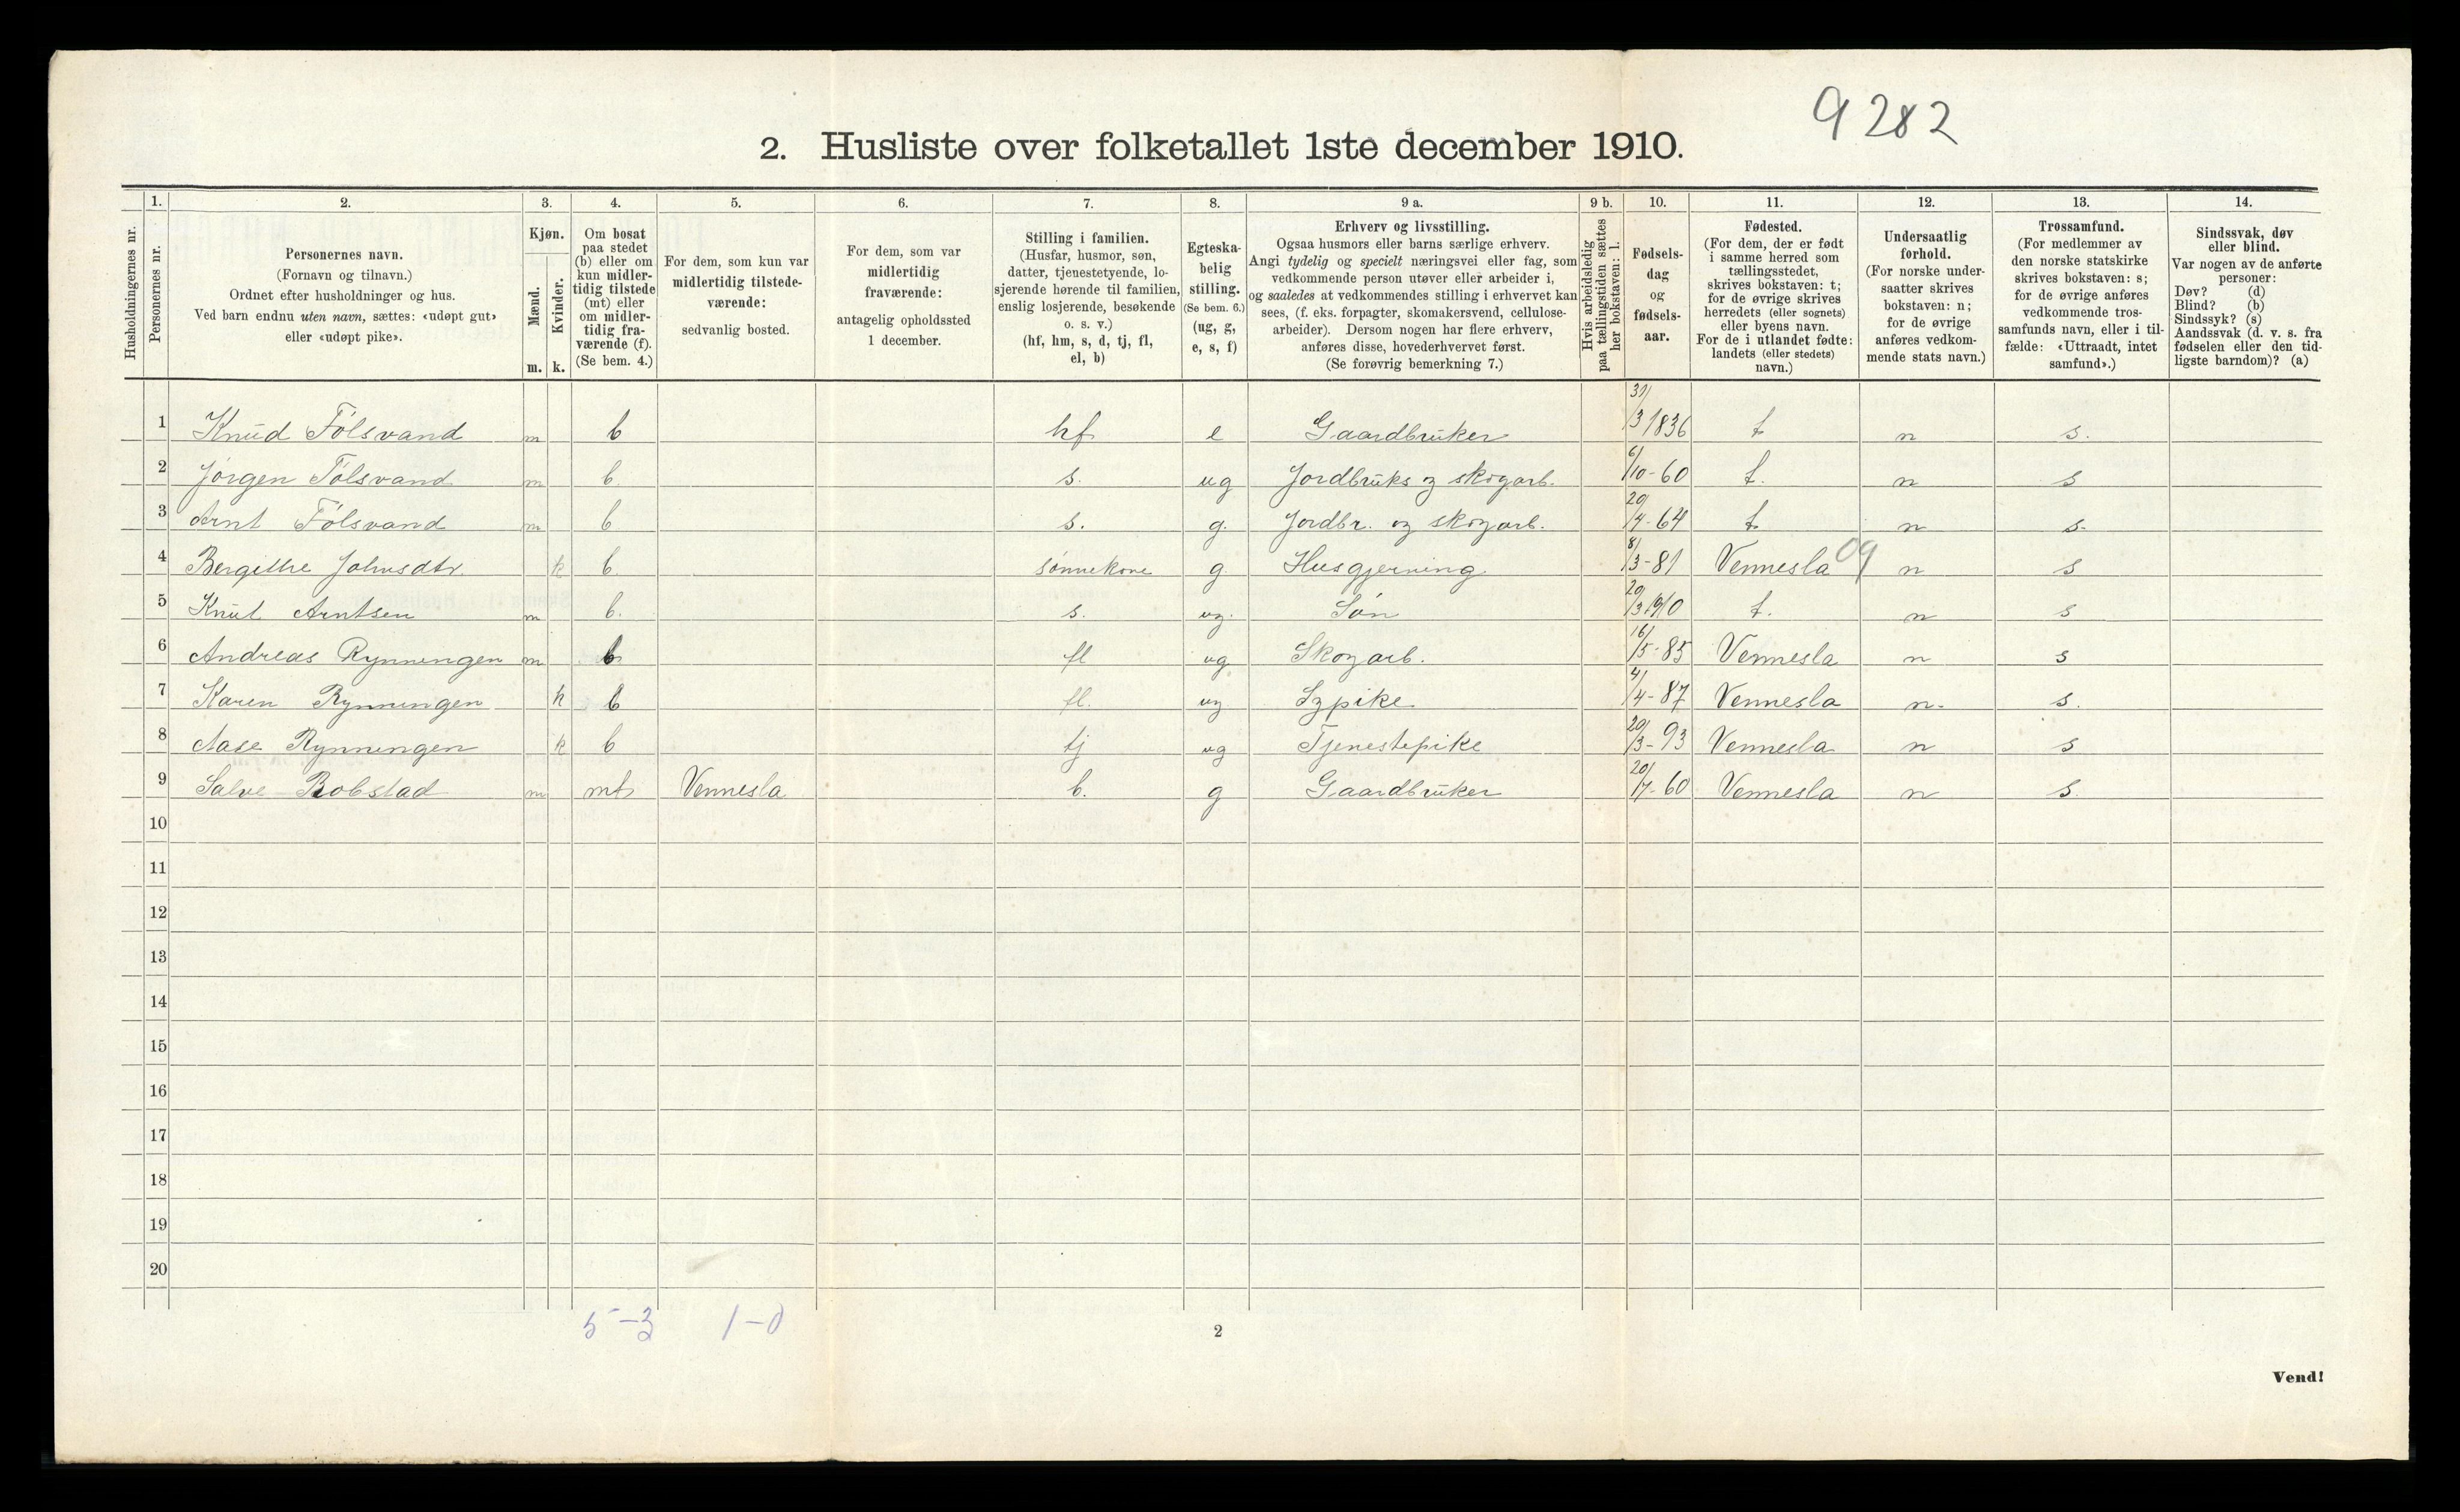 9282
2. Husliste over folketallet 1ste december 1910.
Husholdningernes nr.
1.
Personernes nr.
2.
Personernes navn.
(Fornavn og tilnavn.)
Ordnet efter husholdninger og hus.
Ved barn endnu uten navn, sættes: «udøpt gut»
eller «udøpt pike».
3.
Kjøn.
Mænd.
Kvinder.
m. k.
4.
Om bosat
paa stedet
(b) eller om
kun midler-
tidig tilstede
(mt) eller
om midler-
tidig fra-
værende (f).
(Se bem. 4.)
5.
For dem, som kun var
midlertidig tilstede-
værende:
sedvanlig bosted.
6.
For dem, som var
midlertidig
fraværende:
antagelig opholdssted
1 december.
7.
Stilling i familien.
(Husfar, husmor, søn,
datter, tjenestetyende, lo-
sjerende hørende til familien,
enslig losjerende, besøkende
o. s. v.)
(hf, hm, s, d, tj, fl,
el, b)
8.
Egteska-
belig
stilling.
(Se bem. 6.)
(ug, g,
e, s, f)
9 a.
Erhverv og livsstilling.
Ogsaa husmors eller barns særlige erhverv.
Angi tydelig og specielt næringsvei eller fag, som
vedkommende person utøver eller arbeider i,
og saaledes at vedkommendes stilling i erhvervet kan
sees, (f. eks. forpagter, skomakersvend, cellulose-
arbeider). Dersom nogen har flere erhverv,
anføres disse, hovederhvervet først.
(Se forøvrig bemerkning 7.)
9 b.
Hvis arbeidsledig
paa tællingstiden sættes
her bokstaven: l.
10.
Fødsels-
dag
og
fødsels-
aar.
11.
Fødested.
(For dem, der er født
i samme herred som
tællingsstedet,
skrives bokstaven: t;
for de øvrige skrives
herredets (eller sognets)
eller byens navn.
For de i utlandet fødte:
landets (eller stedets)
navn.)
12.
Undersaatlig
forhold.
(For norske under-
saatter skrives
bokstaven: n;
for de øvrige
anføres vedkom-
mende stats navn.)
13.
Trossamfund.
(For medlemmer av
den norske statskirke
skrives bokstaven: s;
for de øvrige anføres
vedkommende tros-
samfunds navn, eller i til-
fælde: «Uttraadt, intet
samfund».)
14.
Sindssvak, døv
eller blind.
Var nogen av de anførte
personer:
Døv? (d)
Blind? (b)
Sindssyk? (s)
Aandssvak (d. v. s. fra
fødselen eller den tid-
ligste barndom)? (a)
1 Knud Fólsvand m b hf e Gaardbruker 31/3 1836 t n s.
2 Jørgen Fólsvand m b. s. ug Jordbruks og skogarb. 6/10-60 t. n s
3 Arnt Fólsvand m b s. g. Jordbr. og skogarb. 20/4-64 t n s.
4 Bergithe Johnsdtr. k b sónnekone g Husgjerning 8/3-81 Vennesla 09 n s
5 Knut Arntsen m b. s. ug. Són 20/3 1910 t. n s
6 Andreas Rynningen m b fl ug Skogarb. 16/5-85 Vennesla n s
7 Karen Rynningen k b fl. ug Sypike 4/4-87 Vennesla n. s.
8 Aase Rynningen k b tj ug Tjenestepike 20/3-93 Vennesla n s
9 Salve Robstad m mt Vennesla b. g Gaardbruker 20/7-60 Vennesla n s.
10
11
12
13
14
15
16
17
18
19
20
5-3 1-0
2
Vend!